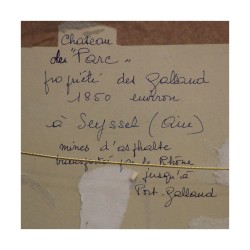 Chateau
du "Parc"
propriété des Galland
1850 environ
à Seyssel (Ain)
mines d'asphalte
transporté par le Rhône
jusqu'à
Port-Galland